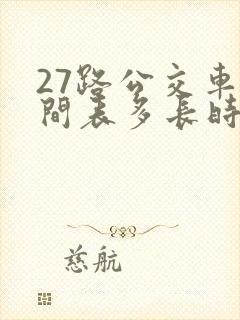 27路公交車
間表多長時
慈航